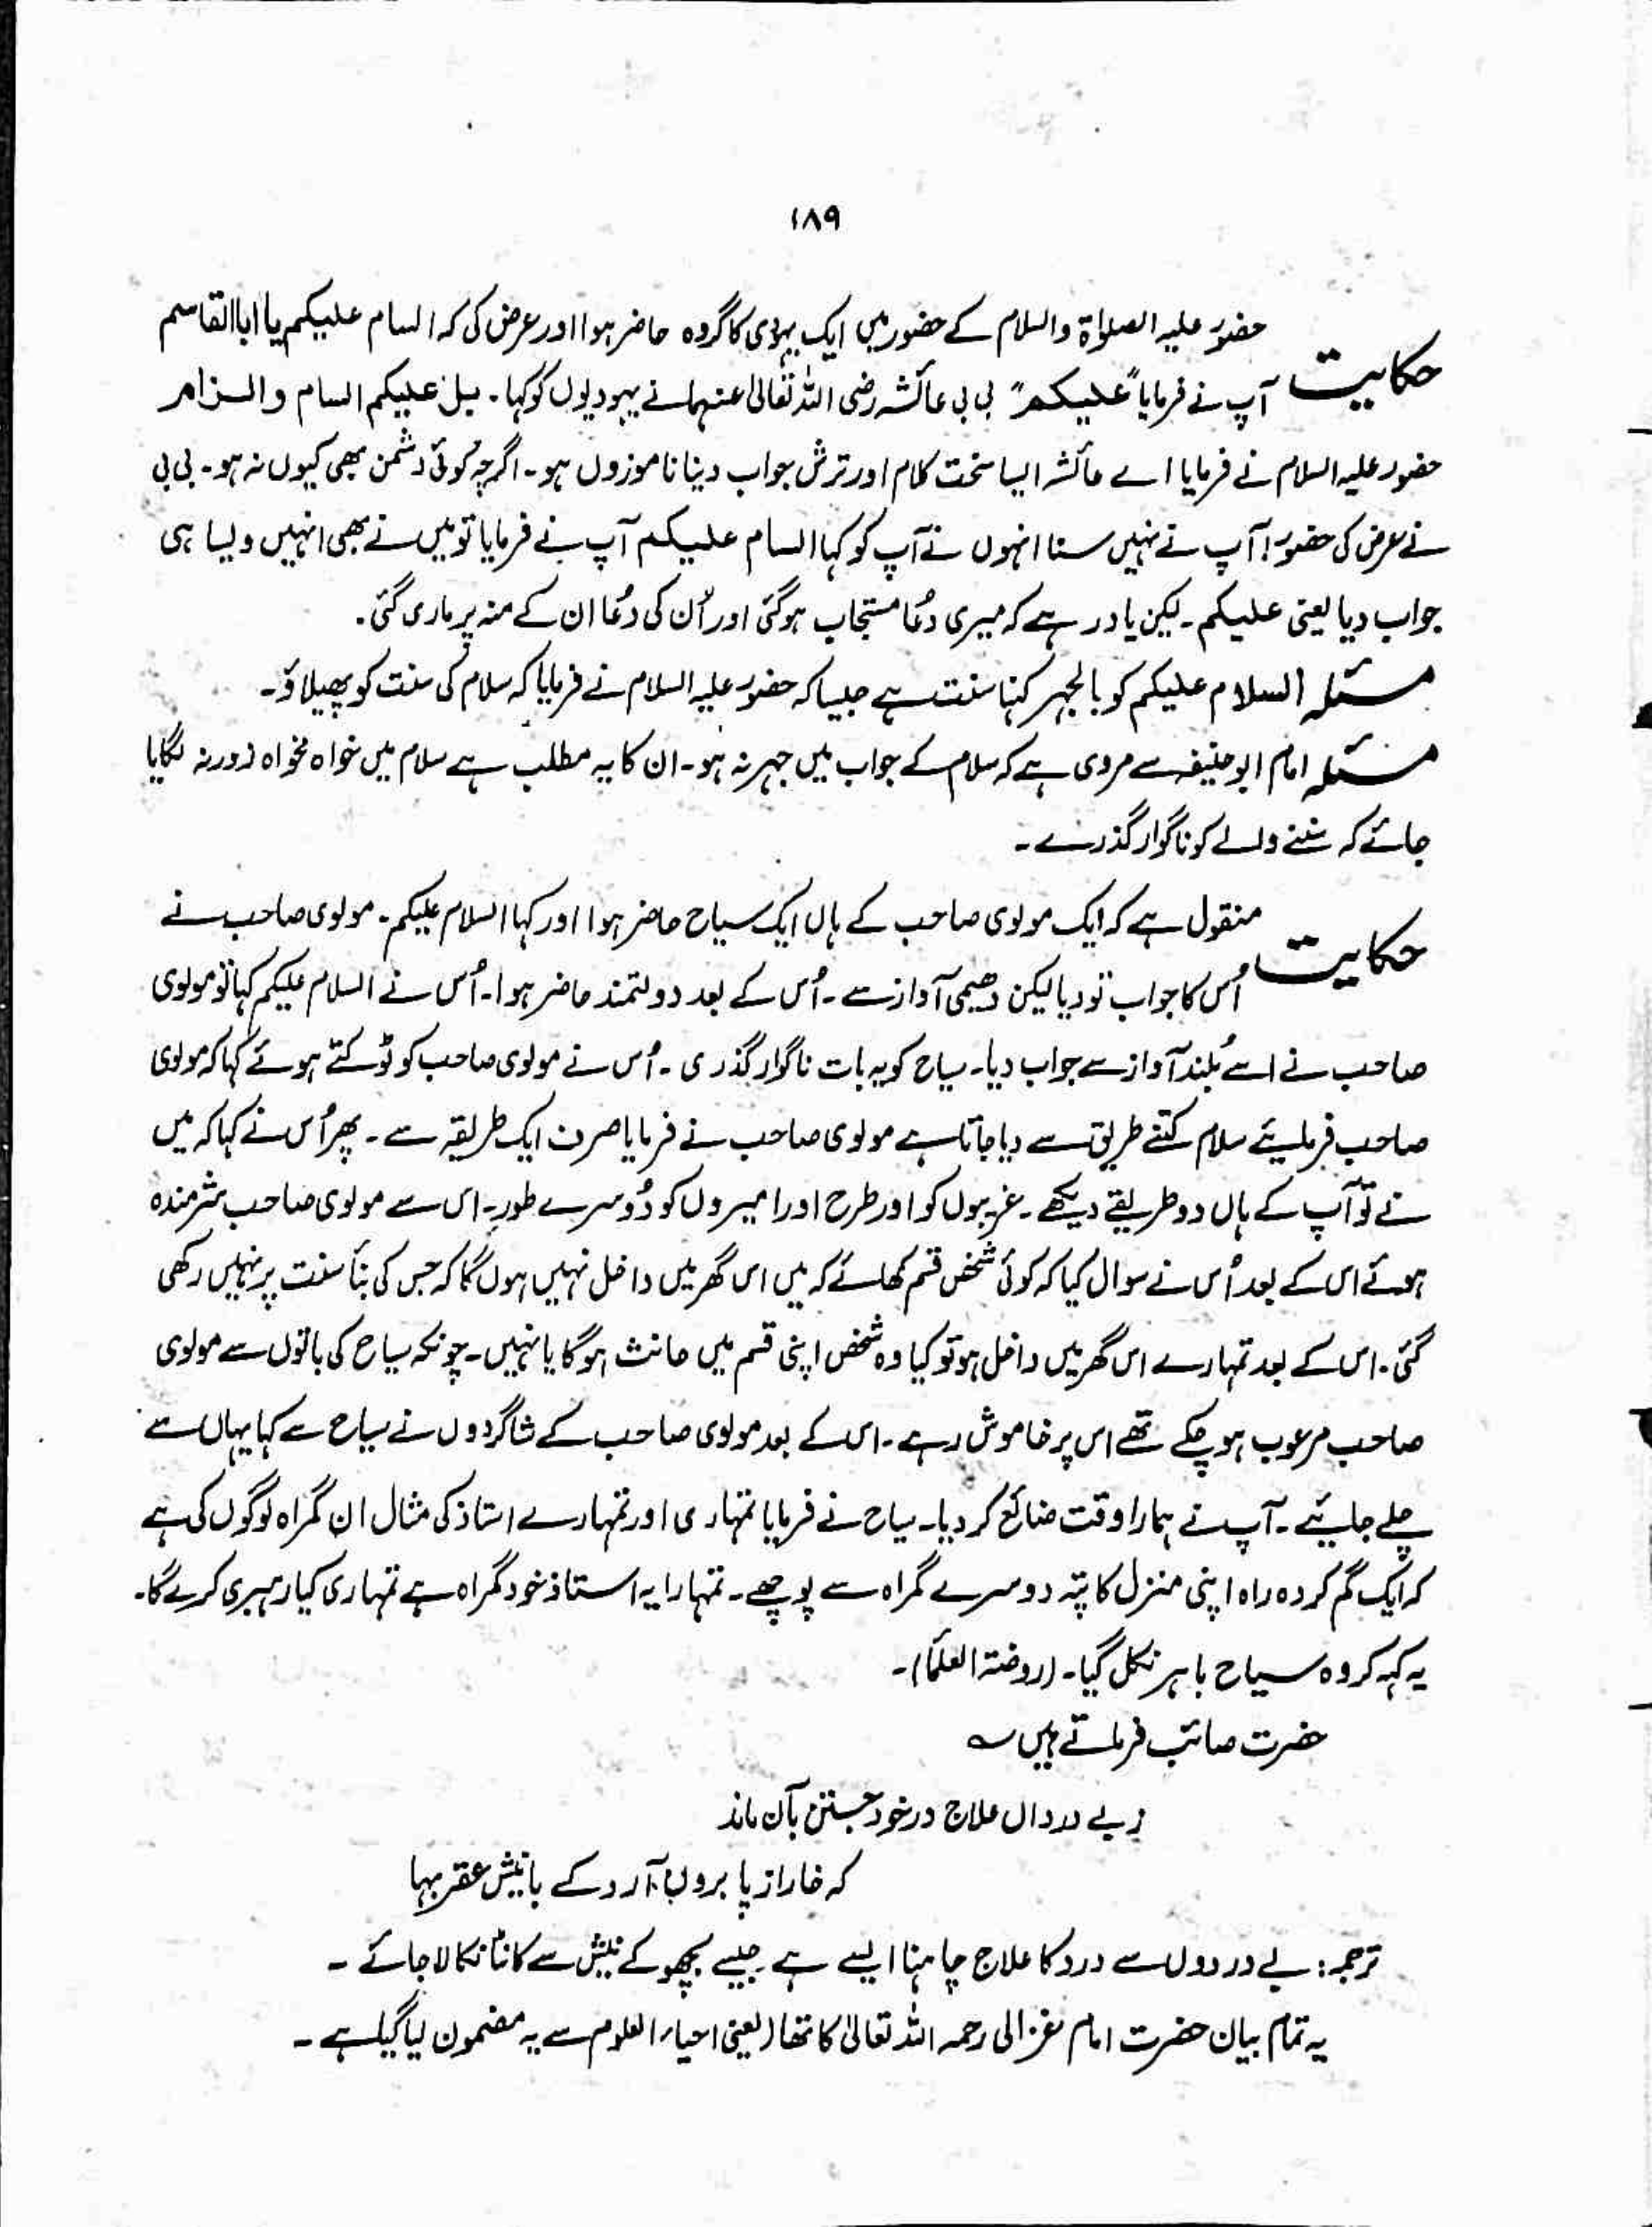 ۱۸۹
حکایت حضور علیہ الصلواۃ والسلام کے حضور میں ایک یہودی کا گروہ حاضر ہوا اور عرض کی کہ السام علیکم یا ابا القاسم
آپ نے فرمایا "علیکم" بی بی عائشہ رضی اللہ تعالیٰ عنہا نے یہودیوں کو کہا۔ بل علیکم السام والزام
حضور علیہ السلام نے فرمایا اے عائشہ ایسا سخت کلام اور ترش جواب دینا ناموزوں ہو۔ اگرچہ کوئی دشمن بھی کیوں نہ ہو۔ بی بی
نے عرض کی حضور! آپ نے نہیں سنا انہوں نے آپ کو کہا السام علیکم آپ نے فرمایا تو میں نے بھی انہیں ویسا ہی
جواب دیا یعنی علیکم۔ لیکن یاد رہے کہ میری دُعا مستجاب ہو گئی اور اُن کی دُعا ان کے منہ پر ماری گئی۔
مسئلہ السلام علیکم کو بالجہر کہنا سنت ہے جیسا کہ حضور علیہ السلام نے فرمایا کہ سلام کی سنت کو پھیلاؤ۔
مسئلہ امام ابوحنیفہ سے مروی ہے کہ سلام کے جواب میں جہر نہ ہو۔ ان کا یہ مطلب ہے سلام میں خواہ مخواہ زور نہ لگایا
جائے کہ سننے والے کو ناگوار گذرے۔
حکایت منقول ہے کہ ایک مولوی صاحب کے ہاں ایک سیاح حاضر ہوا اور کہا السلام علیکم۔ مولوی صاحب نے
اُس کا جواب تو دیا لیکن دھیمی آواز سے۔ اُس کے بعد دولتمند حاضر ہوا۔ اُس نے السلام علیکم کہا تو مولوی
صاحب نے اسے بُلند آواز سے جواب دیا۔ سیاح کو یہ بات ناگوار گذری۔ اُس نے مولوی صاحب کو ٹوکتے ہوئے کہا کہ مولوی
صاحب فرمایئے سلام کتنے طریق سے دیا جاتا ہے مولوی صاحب نے فرمایا صرف ایک طریقہ سے۔ پھر اُس نے کہا کہ میں
نے تو آپ کے ہاں دو طریقے دیکھے۔ غریبوں کو اور طرح اور امیروں کو دُوسرے طور۔ اس سے مولوی صاحب شرمندہ
ہوئے اس کے بعد اُس نے سوال کیا کہ کوئی شخص قسم کھائے کہ میں اس گھر میں داخل نہیں ہوں گا کہ جس کی بنأ سنت پر نہیں رکھی
گئی۔ اس کے بعد تمہارے اس گھر میں داخل ہو تو کیا وہ شخص اپنی قسم میں حانث ہوگا یا نہیں۔ چونکہ سیاح کی باتوں سے مولوی
صاحب مرعوب ہو چکے تھے اس پر خاموش رہے۔ اس کے بعد مولوی صاحب کے شاگردوں نے سیاح سے کہا یہاں سے
چلے جایئے۔ آپ نے ہمارا وقت ضائع کر دیا۔ سیاح نے فرمایا تمہاری اور تمہارے استاذ کی مثال ان گمراہ لوگوں کی ہے
کہ ایک گم کردہ راہ اپنی منزل کا پتہ دوسرے گمراہ سے پوچھے۔ تمہارا یہ استاذ خود گمراہ ہے تمہاری کیا رہبری کرے گا۔
یہ کہہ کر وہ سیاح باہر نکل گیا۔ (روضۃ العلمأ)۔
حضرت صائب فرماتے ہیں ؎
زبے درداں علاج درخود جستن بآن ماند
کہ خار از پا بروں آرد کسے بانیش عقربہا
ترجمہ: بے دردوں سے درد کا علاج چاہنا ایسے ہے جیسے بچھو کے نیش سے کانٹا نکالا جائے۔
یہ تمام بیان حضرت امام غزالی رحمہ اللہ تعالیٰ کا تھا (یعنی احیاء العلوم سے یہ مضمون لیا گیا ہے۔